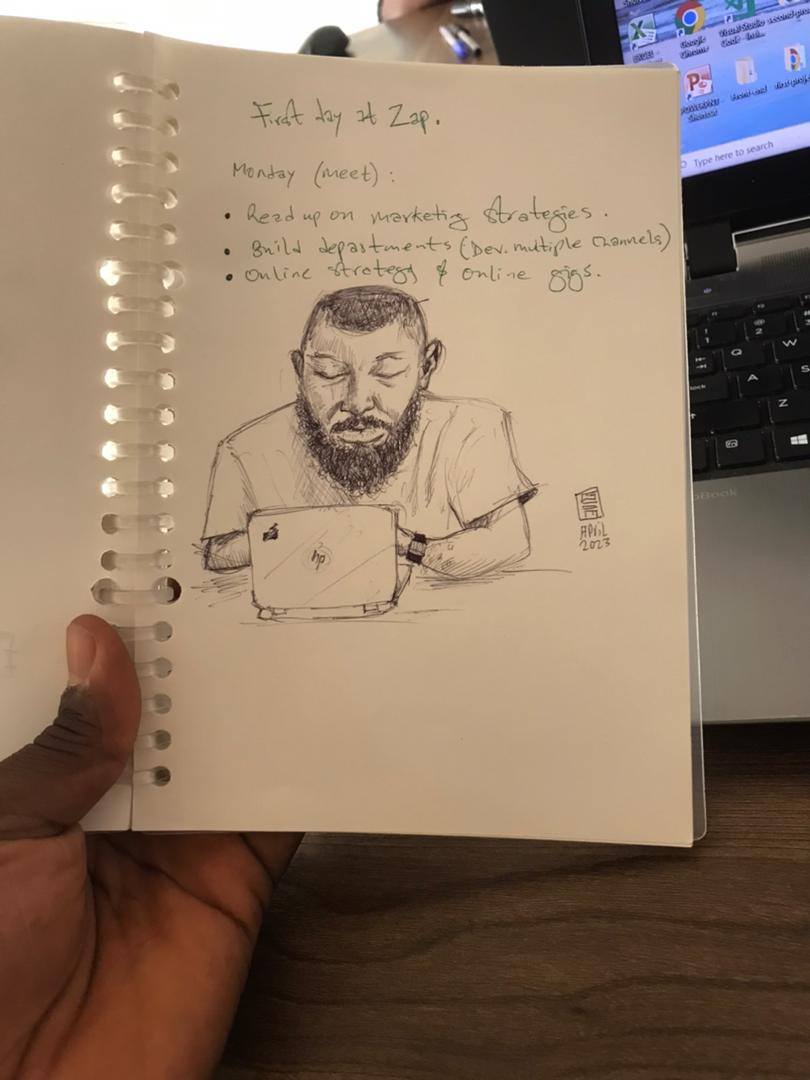 First day at Zap.
Monday (meet) :
• Read up on marketing strategies.
• Build departments (Dev. multiple channels)
• Online strategy & online gigs.
hp
April
2023
EXCEL
Google
Chrome
Visual Studio
Code - Insi...
second-pro
POWERPNT
Shortcut
Front-end
first-proje
Type here to search
1
2
@
Q
W
A
S
Z
lock
oBook